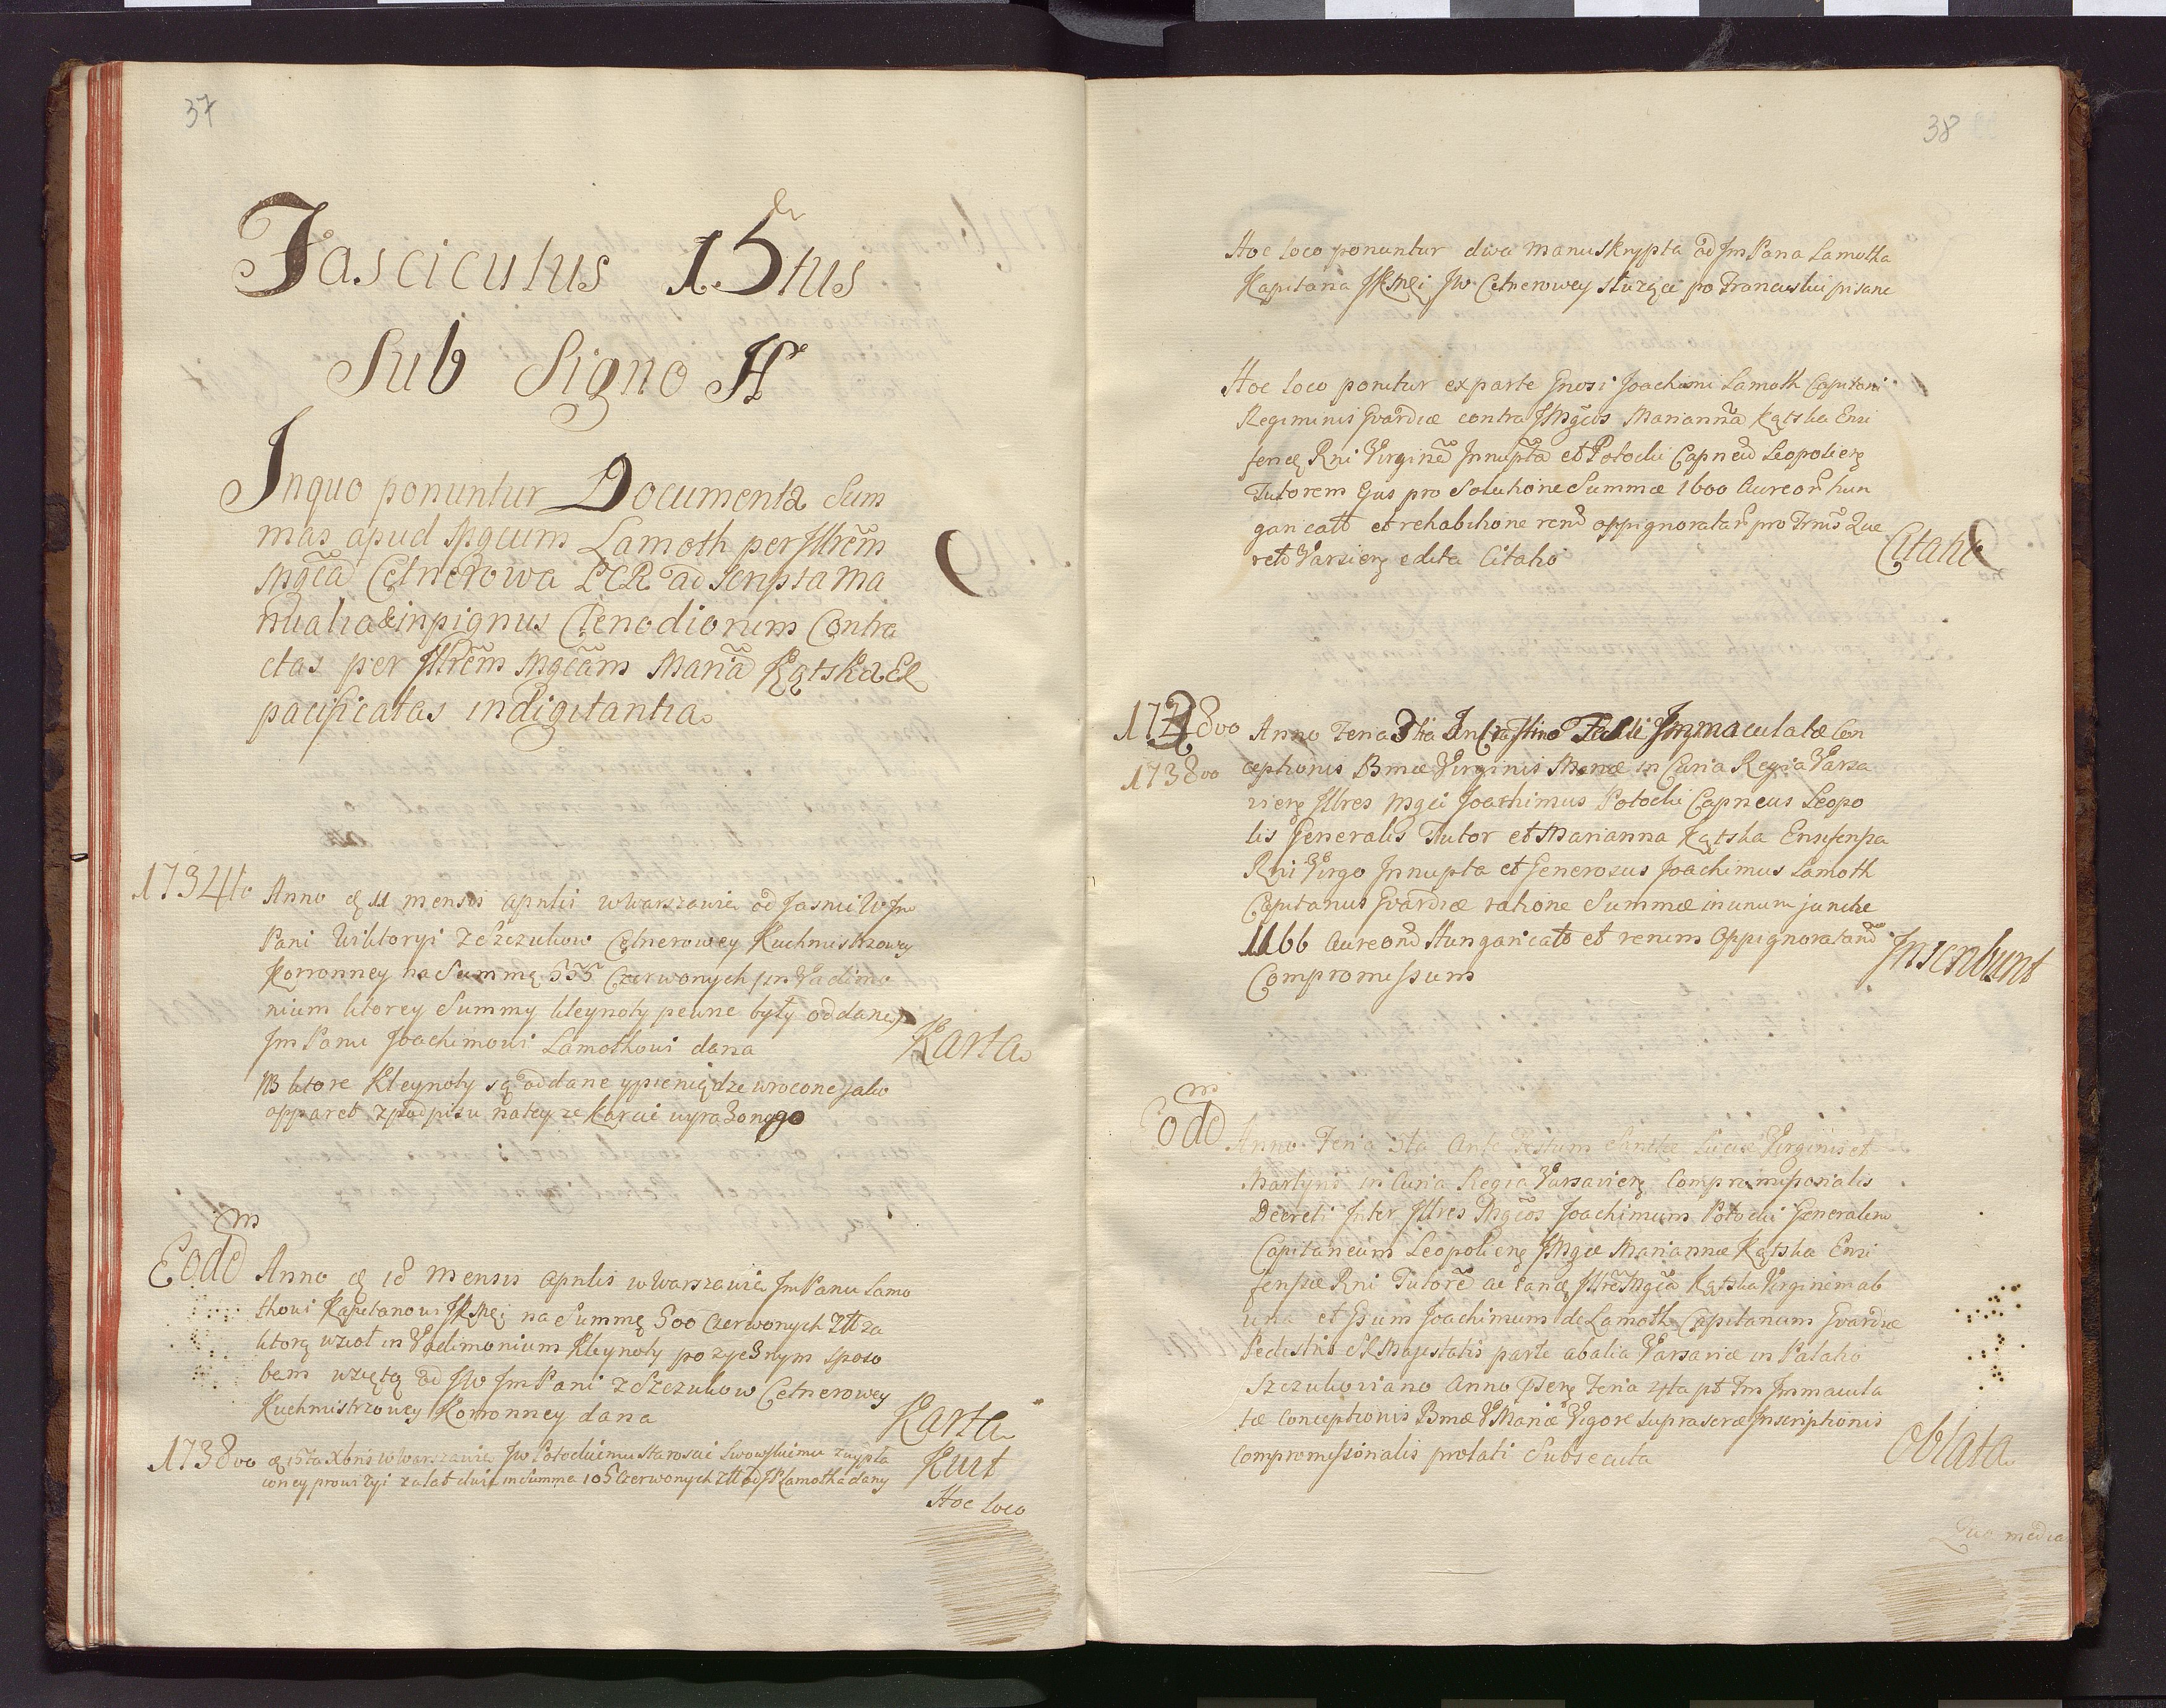 37
Fasciculus 15tus
Sub Signo H
Inquo ponuntur Documenta Sum
mas apud Mgcum Lamoth per Illrem
Mgca Cetnerowa PCR ad Scripta ma
nualia & in pignus Clenodiorum Contra
ctas per Illrem Mgcam Maria Kątska ER
pacificatas indigitantia
1734to Anno d 11 mensis aprilis w Warszawie od Jasnie W Jm
Pani Wiktoryi z Szczukow Cetnerowey Kuchmistrzowey
Koronney na Summę 555 Czerwonych /: in Vadimo
nium ktorey Summy kleynoty pewne były oddane :/
Jm Panu Joachimowi Lamothowi dana
Karta
NB ktore Kleynoty są oddane y pieniądze wrocone jako
apparet z podpisu na teyze karcie wyrazonego
Eodem Anno d 18 mensis aprilis w Warszawie Jm Panu Lamo
thowi Kapitanowi JKMci na Summę 500 Czerwonych Złt za
ktorą wzioł in Vadimonium Kleynoty pozycznym sposo
bem wziętą od JW Jm Pani z Szczukow Cetnerowey
Kuchmistrzowey Koronney dana
Karta
1738vo d 15ta Xbris w Warszawie Jw Potockiemu Staroscie Lwowskiemu z wypła
coney prowizyi za lat dwie in Summa 105 Czerwonych Złt od JP Lamotha dany
Kwit
Hoc loco
38
Hoc loco ponuntur dwa manuskrypta od Jm Pana Lamotha
Kapitana JKMci Jw Cetnerowey słuzące po Francusku pisane
Hoc loco ponitur ex parte Gnosi Joachimi Lamoth Capitani
Regiminis Gvardiæ contra JMgcos Marianna Kątska Ensi
feridę Rni Virgine Innupta et Potocki Capneu Leopolien
Tutorem Ejus pro Solutione Summæ 1600 Aureor hun
garicalt et rehabitione reru oppignoratar pro Trnis Quæ
ret Varsien edita Citatio
Citatio
1738vo
1738vo Anno Feria 3tia in Crastino Festi Immaculatæ Con
ceptionis Bmæ Virginis Mariæ in Curia Regia Varsa
vien Illres Mgci Joachimus Potocki Capneus Leopo
lis Generalis Tutor et Marianna Kątska Ensifersa
Rni Virgo Innupta et Generosus Joachimus Lamoth
Capitanus Gvardiæ ratione Summæ in unum junctæ
1166 Aureoru Hungaricalt et rerum Oppignorataru
Compromissum
Inscribunt
Eodem Anno Feria 5ta Ante Festum Sanctæ Luciæ Virginis et
Martyris in Curia Regia Varsavien Compromissorialis
Decreti Inter Illres Mgcos Joachimum Potocki Generalem
Capitaneum Leopolien JMgæ Mariannæ Kątska Ensi
fersæ Rni Tutore ac eandę Illre Mgca Kątska Virginem ab
una et Gsum Joachimum de Lamoth Capitanum Gvardiæ
Pedestris SR Majestatis parte ab alia Varsaviæ in Palatio
Szczukoviano Anno Psen Feria 4ta pt Fm Immacula
tæ Conceptionis Bmæ V Mariæ Vigore Suprascræ Inscriptionis
Compromissionalis prolati Subsecuta
Oblata
Qua media